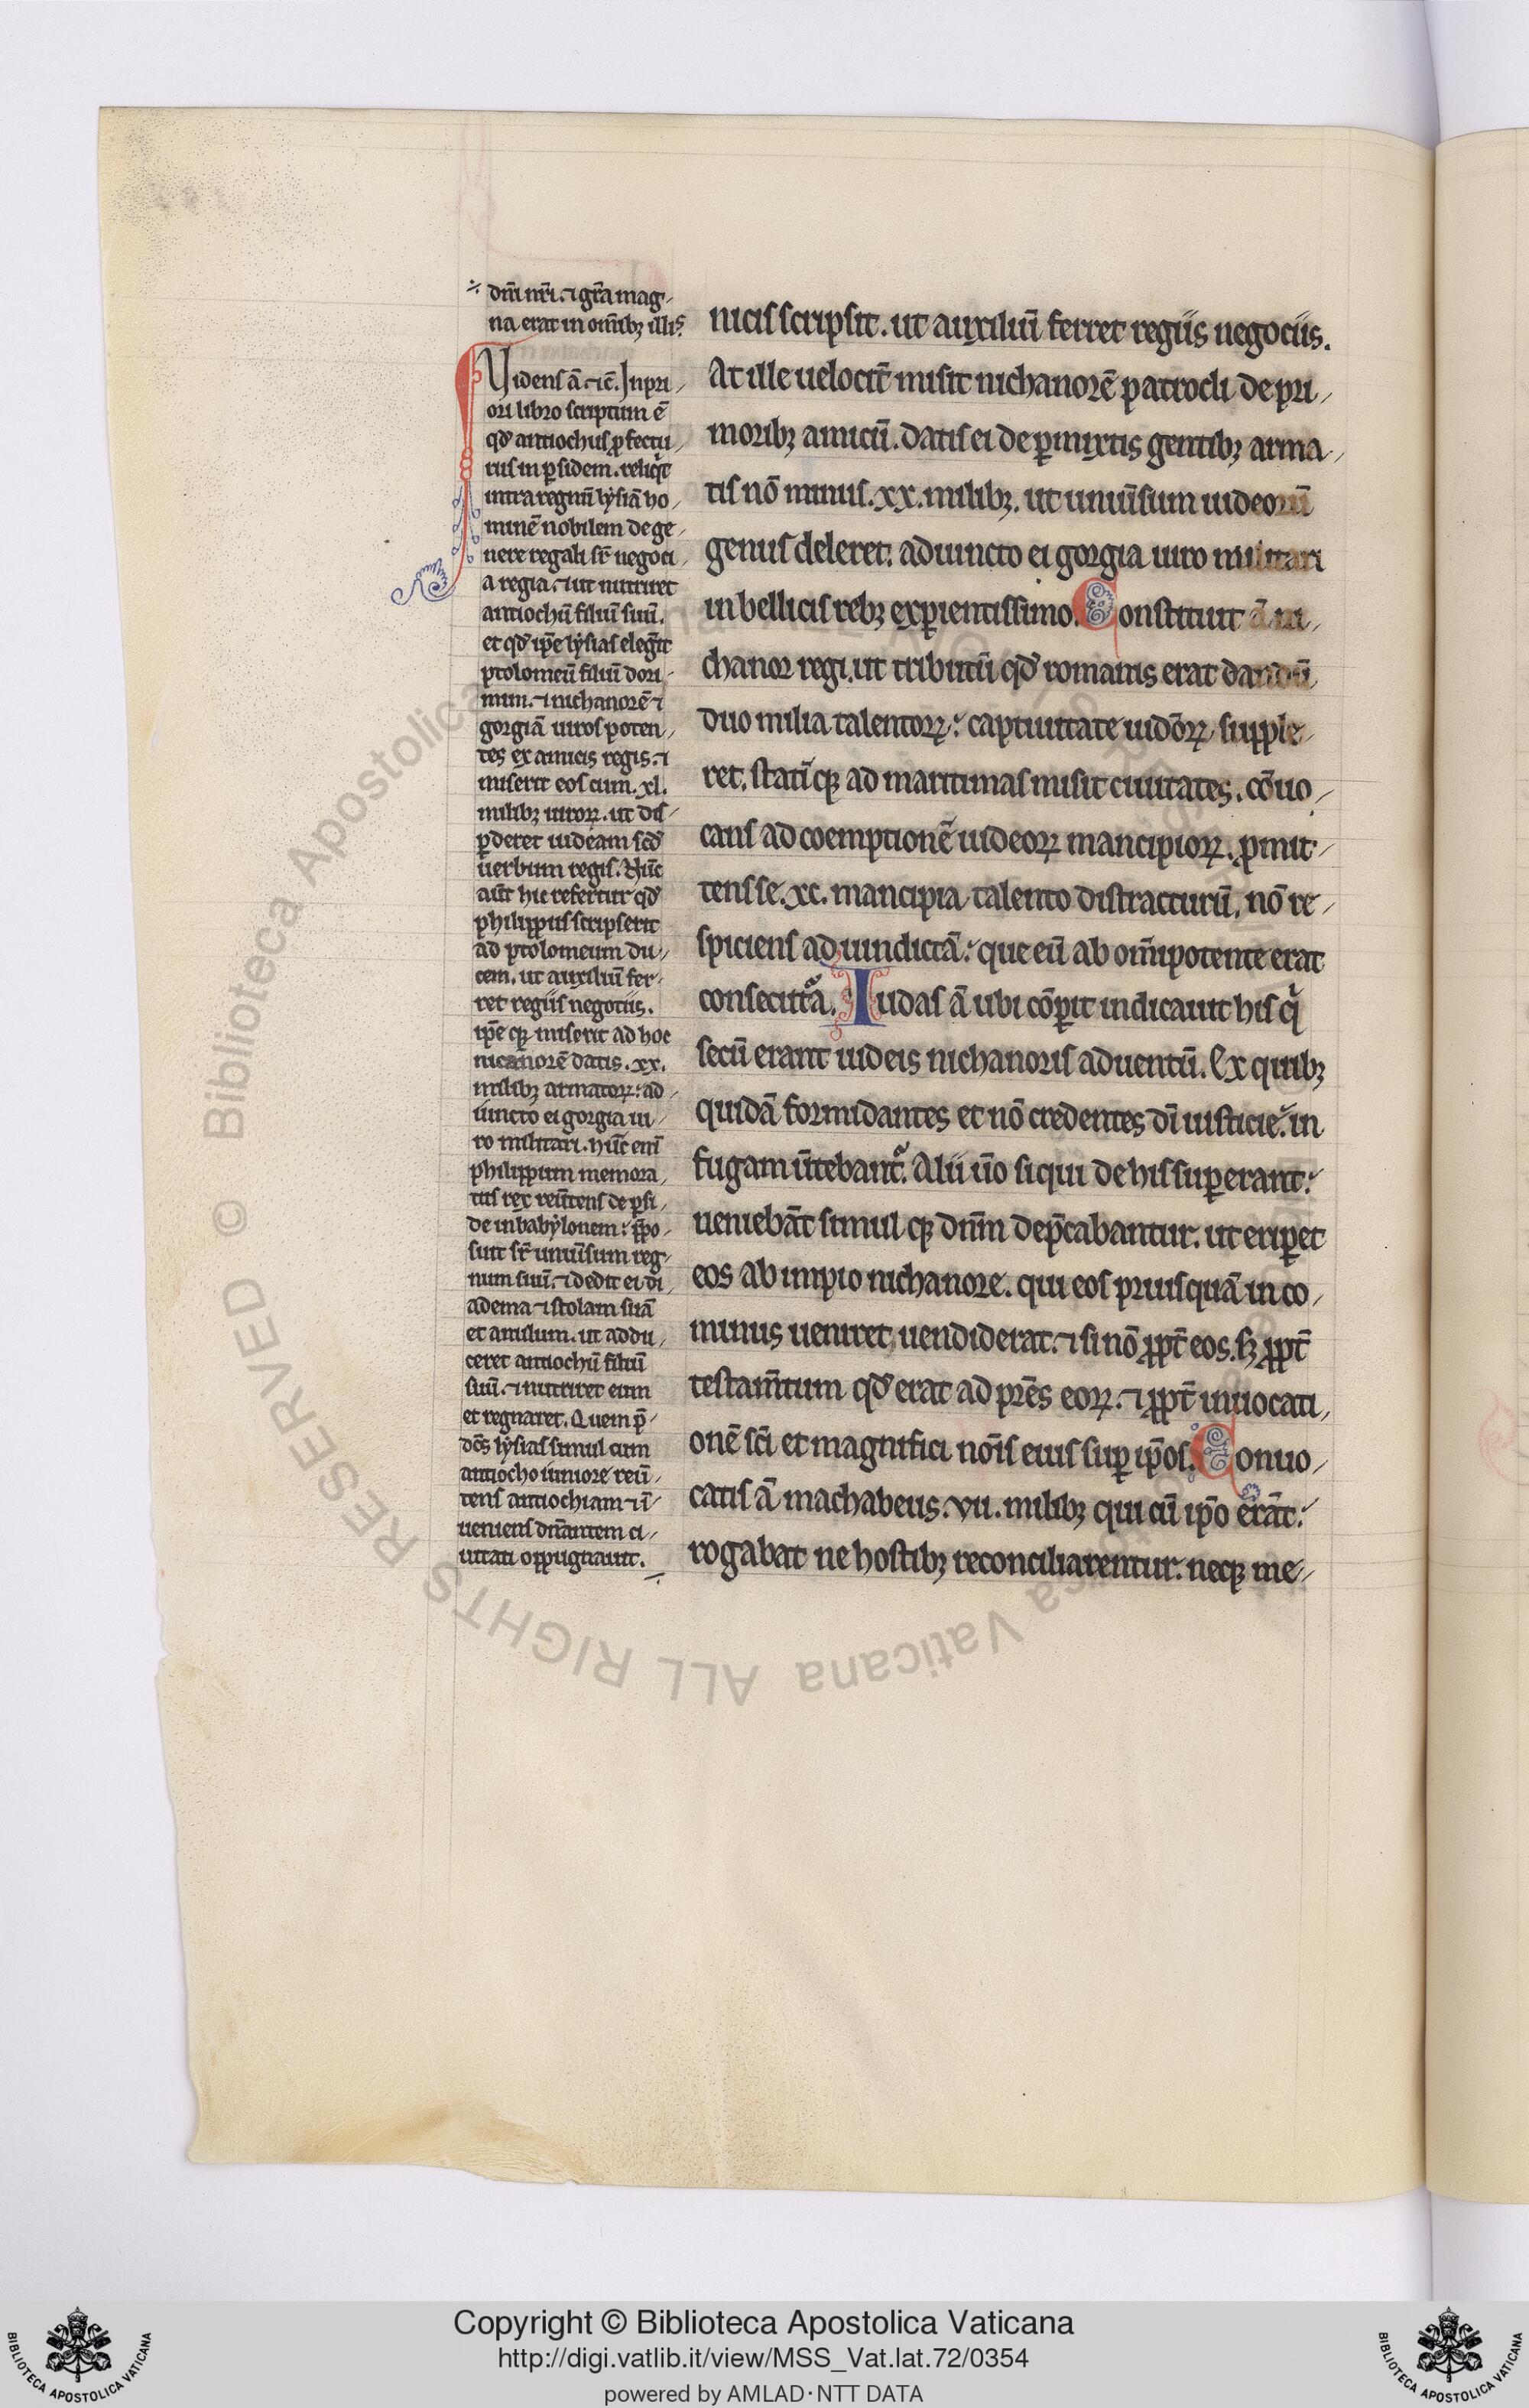 dñi nri. ⁊ gr̃a mag-
na erat in om̃ibꝫ illis.
Videns ã. ⁊ c̃. In pri-
ori libro scriptum ẽ
qđ antiochus ꝓfectu-
rus in ꝑsidem. reliq̇t
intra regnũ lysiã ho-
minẽ nobilem de ge-
nere regali sr̃ negoci-
a regia. ⁊ ut nutriret
antiochũ filiũ suũ.
et qđ ip̃e lysias eleg̃it
ptolomeũ filiũ dori-
min. ⁊ nichanorẽ ⁊
gorgiã uiros poten-
tes ex amicis regis. ⁊
miserit eos cum .xl.
milibꝫ uiroꝝ. ut dis-
ꝑderet iudeam scđ
uerbum regis. Nũc
aũt hic refertur qđ
philippus scripserit
ad ptolomeum du-
cem. ut auxiliũ fer-
ret regiis negotiis.
ip̃e qꝫ miserit ad hoc
nicanorẽ datis .xx.
milibꝫ armatoꝝ: ad-
iuncto ei gorgia ui-
ro militari. hũc eni
philippum memora-
tus rex reũtens de ꝑsi-
de in babylonem: p̃po-
suit sr̃ uniũsum reg-
num suũ. ⁊ dedit ei di-
adema ⁊ stolam suã
et anulum. ut addu-
ceret antiochũ filiũ
suũ. ⁊ nutriret eum
et regnaret. Quem p̃-
dc̃s lysias simul cum
antiocho iuniore reũ-
tens antiochiam ⁊ ĩ-
ueniens dñantem ci-
uitati oppugnauit.
nicis scripsit. ut auxiliũ ferret regiis negociis.
At ille uelocit̃ misit nichanorẽ patrocli de pri-
moribꝫ amicũ. datis ei de ꝑmixtis gentibꝫ arma-
tis nõ minus .xx. milibꝫ. ut uniũsum iudeorũ
genus deleret. adiuncto ei gorgia uiro militari
in bellicis rebꝫ exꝑientissimo. Constituit ã ni-
chanor regi. ut tributũ qđ romanis erat dandũ
duo milia talentoꝝ: captiuitate iudõꝝ supple-
ret. stati̇̃qꝫ ad maritimas misit ciuitates. cõuo-
cans ad coemptionẽ iudeoꝝ mancipioꝝ. ꝓmit-
tens se .xc. mancipia talento distracturũ. nõ re-
spiciens ad uindictã: que eũ ab om̃ipotente erat
consecutᵃa. Iudas ã ubi cõꝑit indicauit his q̇
secũ erant iudeis nichanoris aduentũ. Ex quibꝫ
quidã formidantes et nõ credentes dĩ iusticie: in
fugam ũtebant᷑. Alii ũo si qui de his suꝑerant:
ueniebãt simul qꝫ dñm dep̃cabantur. ut eriꝑet
eos ab impio nichanore. qui eos priusquã in co-
minus ueniret uendiderat. ⁊ si nõ ꝓpt̃ eos. sꝫ ꝓpt̃
testam̃tum qđ erat ad pr̃es eoꝝ. ⁊ ꝓpt̃ inuocati-
onẽ sc̃i et magnifici noĩs eius suꝑ ip̃os. Conuo-
catis ã machabeus .vii. milibꝫ qui cũ ip̃o erãt:
rogabat ne hostibꝫ reconciliarentur. neqꝫ me-
© Biblioteca Apostolica Vaticana ALL RIGHTS RESERVED
Copyright © Biblioteca Apostolica Vaticana
http://digi.vatlib.it/view/MSS_Vat.lat.72/0354
powered by AMLAD·NTT DATA
BIBLIOTECA APOSTOLICA VATICANA
BIBLIOTECA APOSTOLICA VATICANA